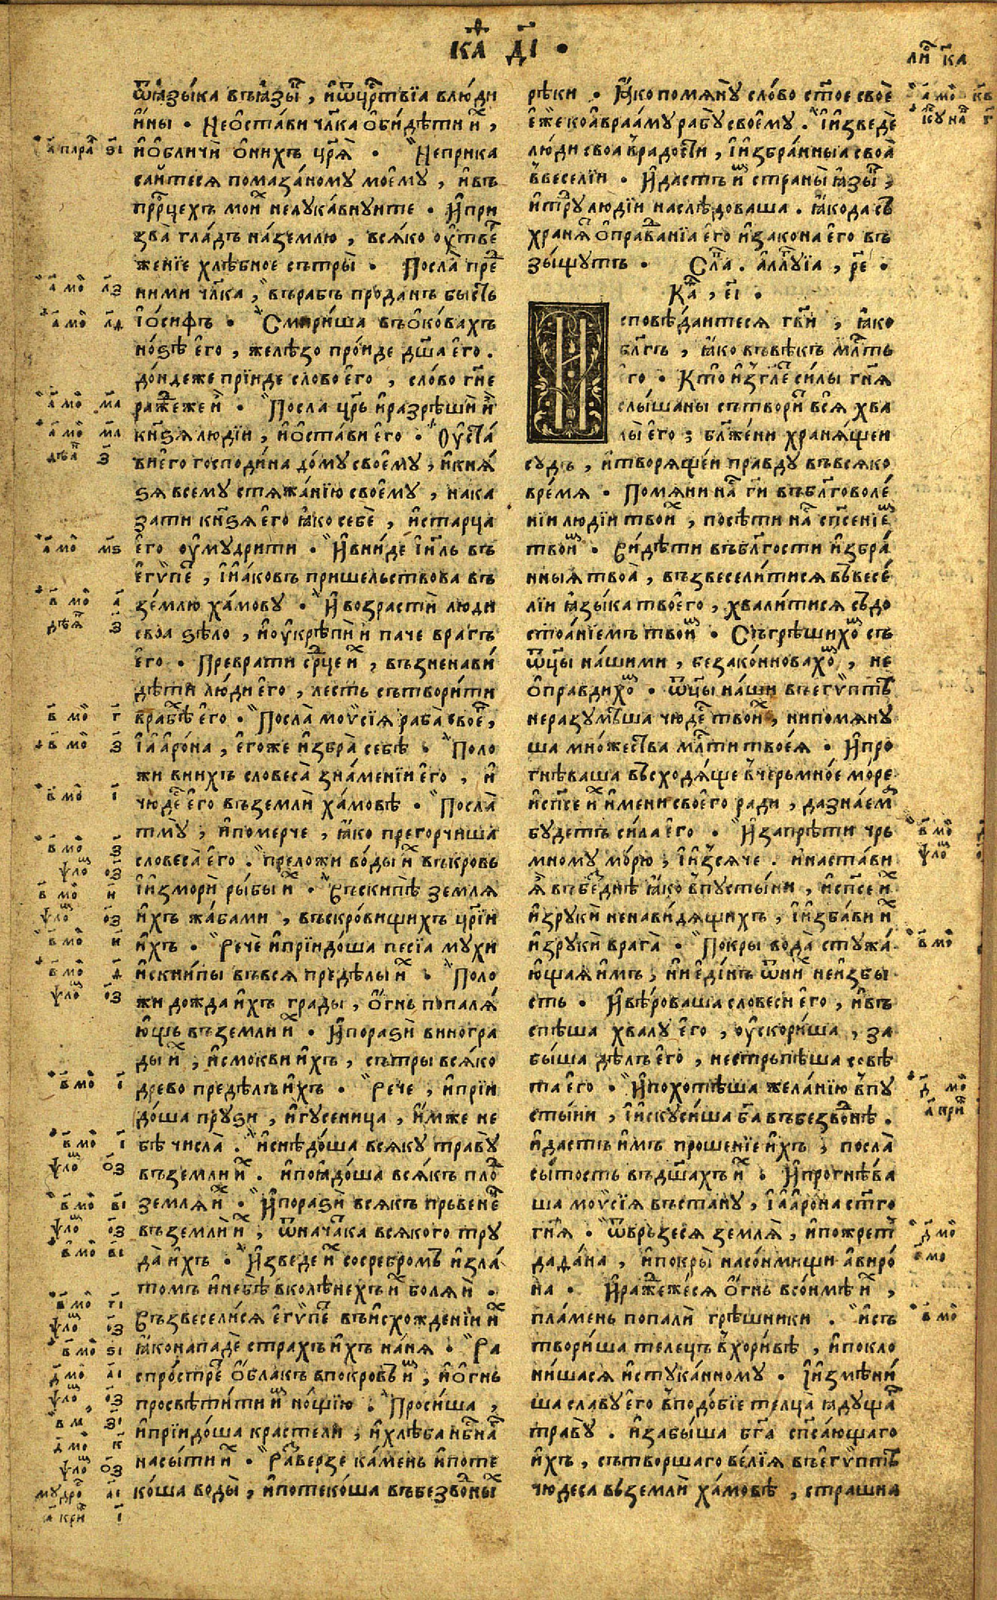 ка҃ ді҃ .
ли҃ ка
ѿꙗзы́ка въꙗзы҃, иѿцр҃твїа влю́ди
и́ны . Неѡ҆ста́ви чл҃ка ѡ҆би́дѣти и҆̀,
иѡ҆бличѝ ѡ҆ни́хъ цр҃ѧ̀ . Неприка
са́йтесѧ помаза́ному моемꙋ, ивъ
прⷪ҇рцехъ мои҃ нелꙋка́внꙋите . И҆при
зва̀ гла́дъ на́землю, всѧ́ко ᲂу҆тве҃
же́нїе хлѣ́бное сътры̀ . Посла̀ пре҃
ни́ми чл҃ка, въра́бъ про́данъ бысть
іѡ́сифъ . Смири́ша въѡ҆ко́вахъ
но́ѕѣ его̀, желѣ́зо про́иде дш҃а его̀ .
до́ндеже прїи́де сло́во его̀, сло́во гн҃е
ражⷣеже и҆̀ . Посла̀ цр҃ь иразрѣши́ и҆̀
кнѧ́ѕѧ люді́и, иѡ҆ста́ви его̀ . Ѹ҆ста҃
вѝ его̀ господи́на до́мꙋ своемꙋ̀, икнѧ́
ѕѧ всемꙋ̀ стѧжа́нїю своемꙋ̀, нака
за́ти кнѧ́ѕѧ его̀ ꙗ҆́ко себѐ, иста́рца
его̀ ᲂу҆мꙋ́дрити . И҆вни́де ізⷭ҇ль въ
егѵ́пе҃, іиа́ковъ пришельствова въ
зе́млю ха́мовꙋ . И҆возрастѝ лю́ди
своа̀ ѕѣло̀, иᲂу҆крѣпѝ и҆̀ па́че вра́гъ
его̀ . Превратѝ срⷣце и҃, възненави́
дѣти лю́ди его̀, ле́сть сътвори́ти
врабѣ́ его̀ . Посла̀ моѵсїѧ раба̀ свое҃,
іаарѡ́на, его́же избра̀ себѣ̀ . Поло
жѝ вни́хъ словеса̀ зна́менїи его̀, и
чюде҃ его̀ въземлѝ ха́мовѣ . Посла̀
тмꙋ̀, ипомерче, ꙗ҆́ко прегорчи́ша
словеса̀ его̀ . преложѝ во́ды и҃ въкро́вь
іизморѝ ры́бы и҃ . Въскипѣ̀ землѧ̀
и́хъ жа́бами, въскро́вищихъ цр҃їи
и́хъ . Речѐ ипрїидо́ша песїа мꙋ́хи
искни́пы въвсѧ̀ предѣ́лы и҃ . Поло
жѝ дожда̀ и́хъ гра́ды, ѻ҆́гнь попалѧ́
ющь въземлѝ и҃ . И҆поразѝ виногра́
ды и҃, исмо́кви и́хъ, сътры̀ всѧ́ко
дре́во предѣ́лъ и́хъ . Рече, ипрїи
до́ша прꙋ́зи, игꙋ́сеница, и́мже не
бѣ̀ числа̀ . иснѣдо́ша всѧ́кꙋ травꙋ̀
въземлѝ и҃ . ипоꙗдо́ша всѧ́къ пло҃
землѧ̀ и҃ . И҆поразѝ всѧ́къ първене҃
въземлѝ и҃, ѿнача́тка всѧ́кого трꙋ
да̀ и́хъ . И҆зведе и҃ сосребромъ изла́
томъ инебѣ̀ вколѣ́нехъ и҃ болѧ́и .
Възвесели́сѧ егѵ́пе҃ въисхожде́нїи и҃
ꙗ҆́конападѐ стра́хъ и́хъ на́нѧ . Ра
спростре҃ ѻ҆́блакъ впокро́въ и҃, иѻ҆́гнь
просвѣти́ти и҃ но́щїю . Проси́ша,
ипрїидо́ша кра́стели, ихлѣ́ба нб҃на҃
насы́ти и҃ . Разве́рзе ка́мень ипоте
ко́ша во́ды, ипотеко́ша въбезво́ⷣны҃
рѣ́ки . И҆ꙗ҆́ко помѧнꙋ̀ сло́во ст҃о́е своѐ
е҆́же коавраа́мꙋ рабꙋ̀ своемꙋ̀ . Іизведѐ
лю́ди своа̀ вра́дости, іизбра́нныа своа̀
ввесе́лїи . И҆да́стъ и҃ страны̀ ꙗзы҃,
итрⷣꙋ́ людїи наслѣ́доваша . ꙗ҆́кода съ
хранѧ҃ ѡ҆правда́нїа его̀ изако́на его̀ въ
зы́щꙋтъ . Сл҃а . аллⷧ҇ꙋїа, г҃е .
Ка҃, е҃і .
Исповѣ́даитесѧ гв҃и, ꙗ҆́ко
бл҃гъ, ꙗ҆́ко въвѣ́къ млⷭ҇ть
его . Кто̀ изгл҃е си́лы гн҃ѧ
слы́шаны сътвори҃ всѧ̀ хва
лы̀ его̀; блаже́ни хранѧ́щеи
сꙋ́дъ, итворѧ́щеи пра́вдꙋ въвсѧ́ко
вре́мѧ . Помѧнѝ на҃ ги҃ въбл҃говоле́
нїи людїи твои҃, посѣтѝ на҃ сп҃сенїе҃
твои҃ . Ви́дѣти въбл҃гости избра́
нныѧ твоа̀, възвесели́тисѧ въвесе́
лїи ꙗзы́ка твоего̀, хвали́тисѧ съдо
стоа́нїемъ твои҃ . Съгрѣши́хо҃ съ
ѿцы̀ на́шими, беззако́нновахо҃, не
ѡ҆пра́вдихо҃ . ѿцы̀ на́ши въегѵ́птѣ
неразꙋмѣ́ша чюде҃ твои҃, нипомѧнꙋ́
ша мно́жества млⷭ҇ти твоеѧ̀ . И҆про
гнѣ́ваша въсходѧ́ще вчерьмно́е мо́ре
исп҃се и҃ и́мени своего̀ ра́ди, дазна́ем҃
бꙋ́детъ си́ла его̀ . И҆запрѣтѝ чрь
мно́мꙋ мо́рю, іизсѧ́че . инаста́ви
ѧ҆̀ въбе́зднѣ ꙗ҆́ко впꙋсты́ни, исп҃се и҃
изрꙋкѝ ненави́дѧщихъ, іизба́ви и҃
изрꙋкѝ врага̀ . Покры̀ вода̀ стꙋжа́
ющаѧ и́мъ, ниеди́нъ ѿни҃ неизбы́
сть . И҆вѣ́роваша словесѝ его̀, ивъ
спѣ́ша хвалꙋ̀ его̀, ᲂу҆скори́ша, за
бы́ша дѣ́лъ его̀, нестрьпѣ́ша совѣ́
та его̀ . И҆похотѣ́ша жела́нїю впꙋ
сты́ни, іискꙋси́ша б҃а въбезво́ⷣнѣ .
ида́стъ и́мъ проше́нїе и́хъ, посла̀
сы́тость въдш҃а́хъ и҃ . И҆прогнѣ́ва
ша моѵсїѧ въста́нꙋ, іаарѡ́на ст҃го
гн҃ѧ . ѿврь́зесѧ землѧ̀, ипожре҃
дада́на, ипокры̀ насо́нмищи авирѡ́
на . И҆ражⷣеже́сѧ ѻ҆́гнь всо́нмѣ и҃,
пла́мень попалѝ грѣ́шники . исъ
твори́ша теле́цъ вхори́вѣ, ипокло
ни́шасѧ истꙋка́нномꙋ . Іизмѣни́
ша сла́вꙋ его̀ вподо́бїе тельца̀ ꙗдꙋща҃
травꙋ̀ . изабы́ша бг҃а сп҃са́ющаго
и́хъ, сътво́ршаго ве́лїѧ въегѵ́птѣ
чюдеса̀ въземлѝ ха́мовѣ, стра́шна